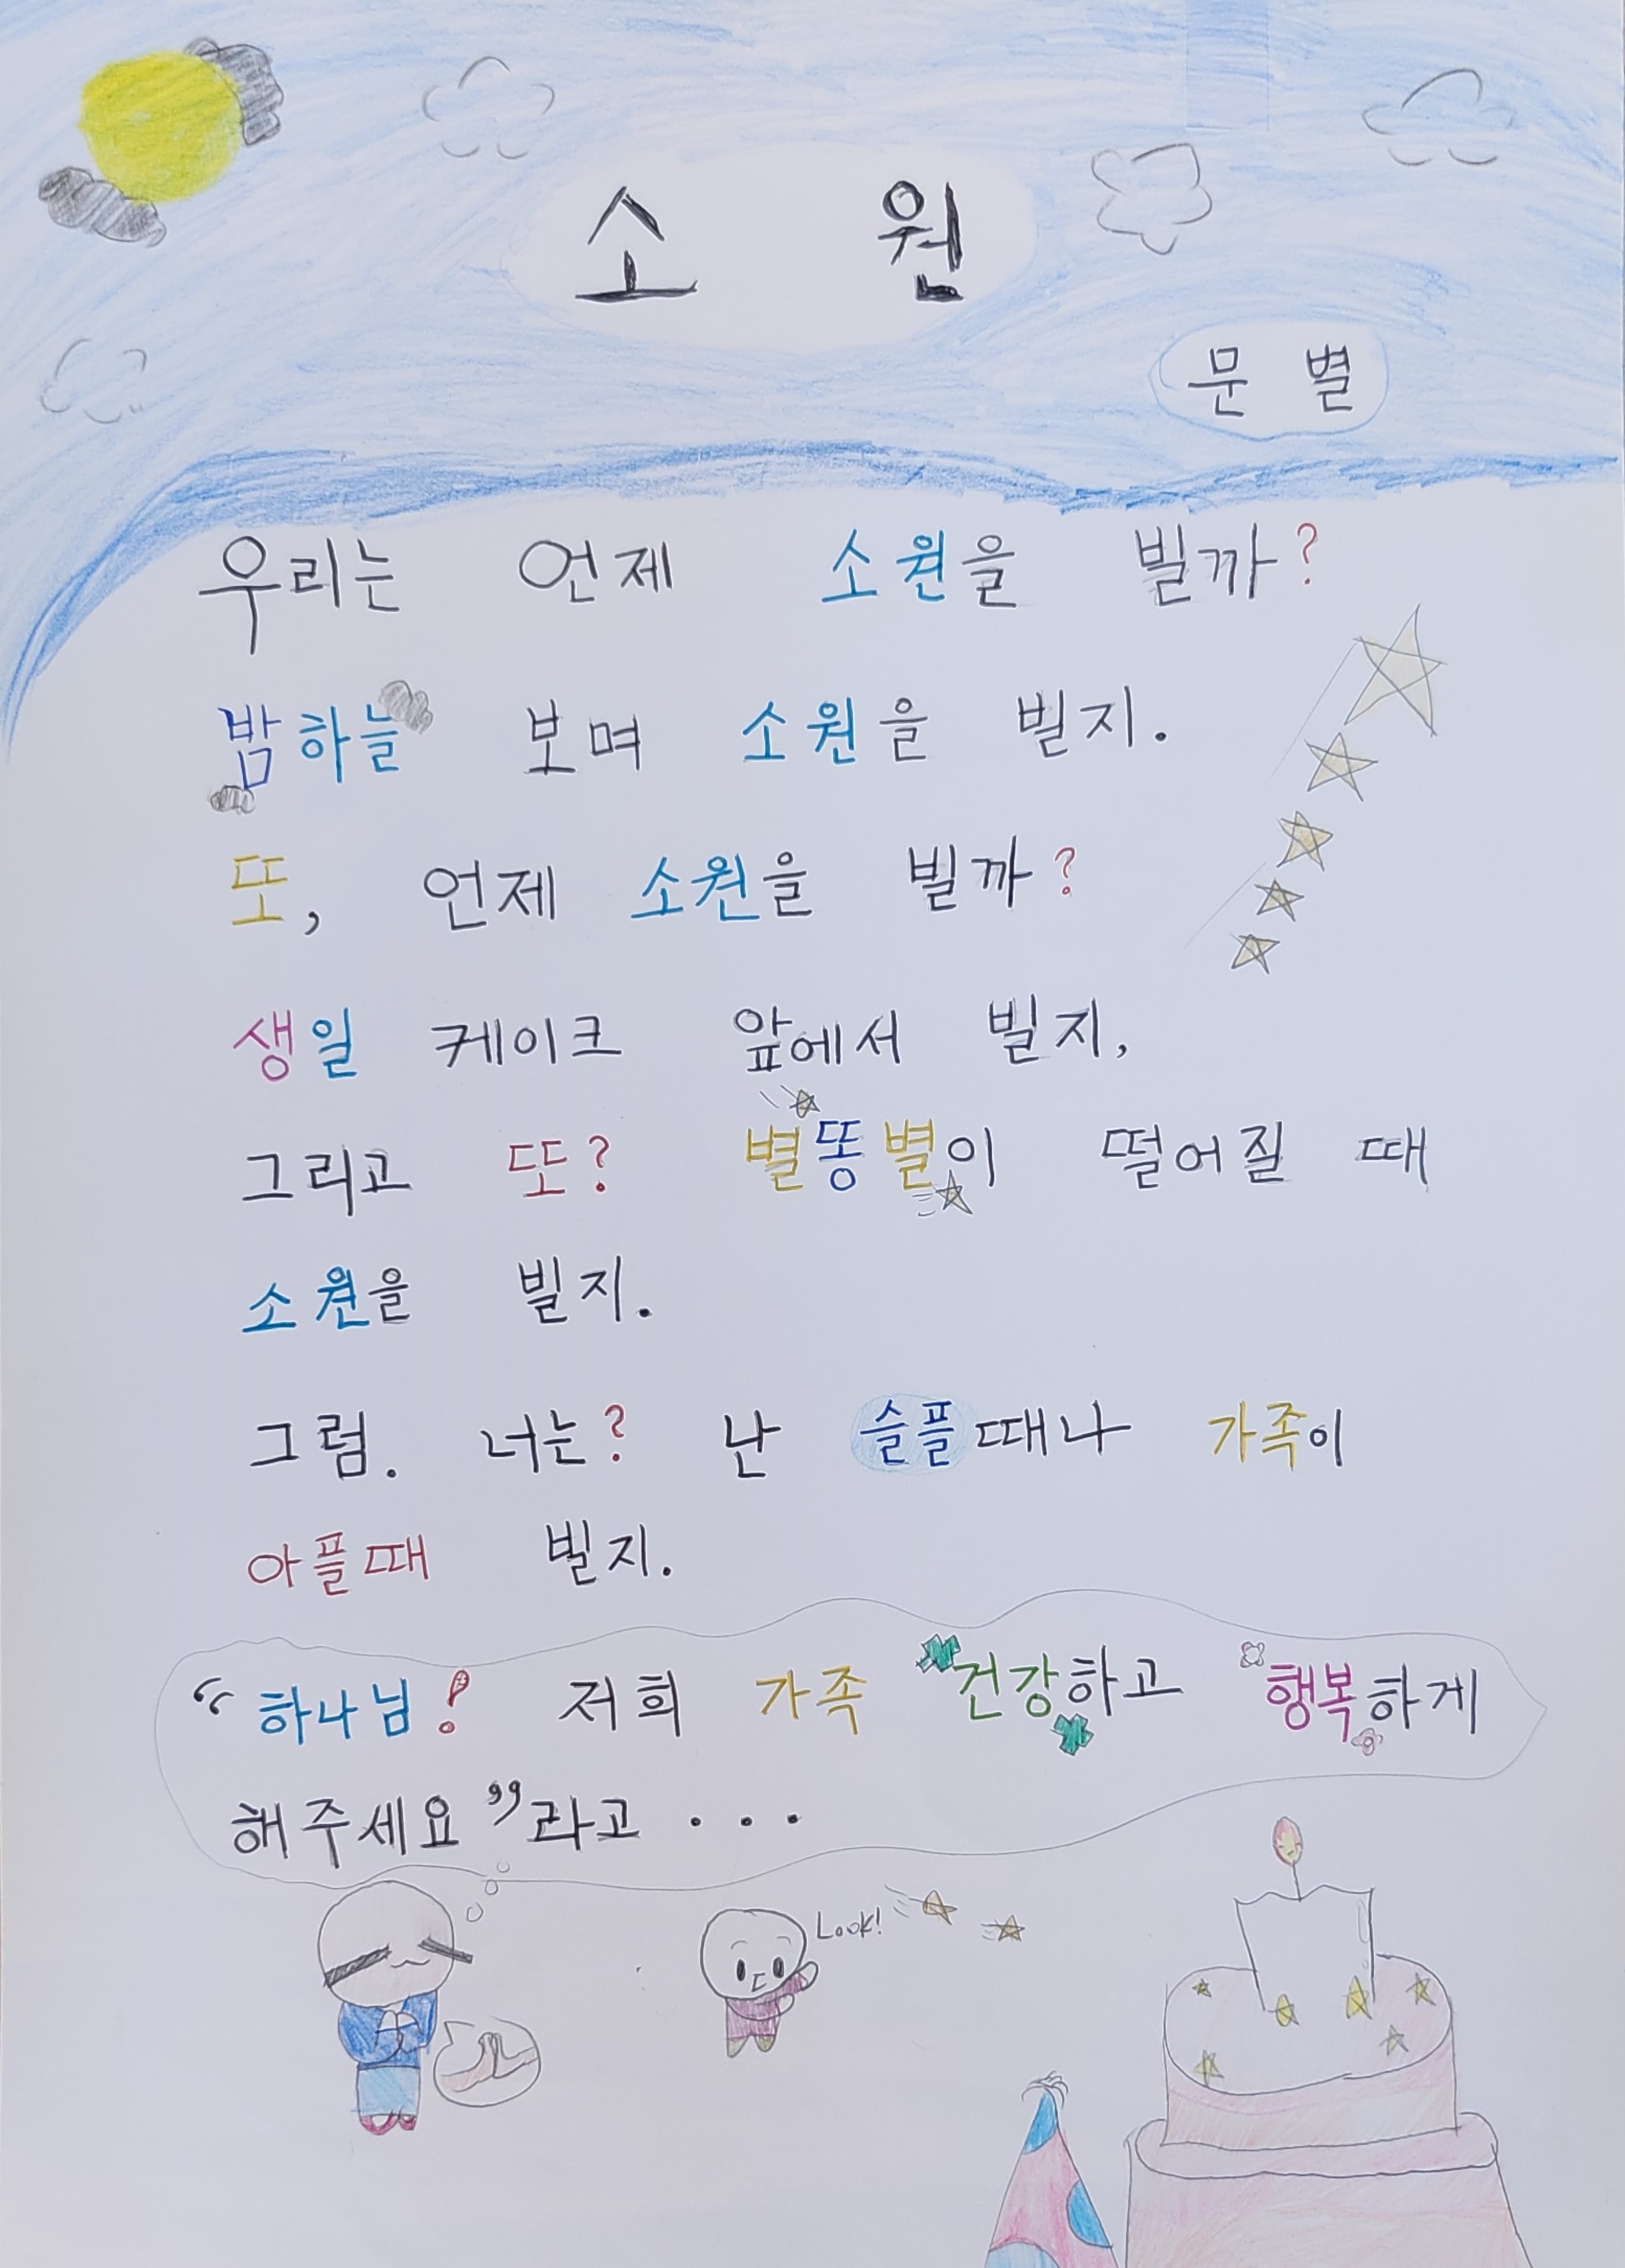 소 원
문 별
우리는 언제 소원을 빌까?
밤하늘 보며 소원을 빌지.
또, 언제 소원을 빌까?
생일 케이크 앞에서 빌지,
그리고 또? 별똥별이 떨어질 때
소원을 빌지.
그럼. 너는? 난 슬플때나 가족이
아플때 빌지.
“하나님! 저희 가족 건강하고 행복하게
해주세요”라고 ...
Look!